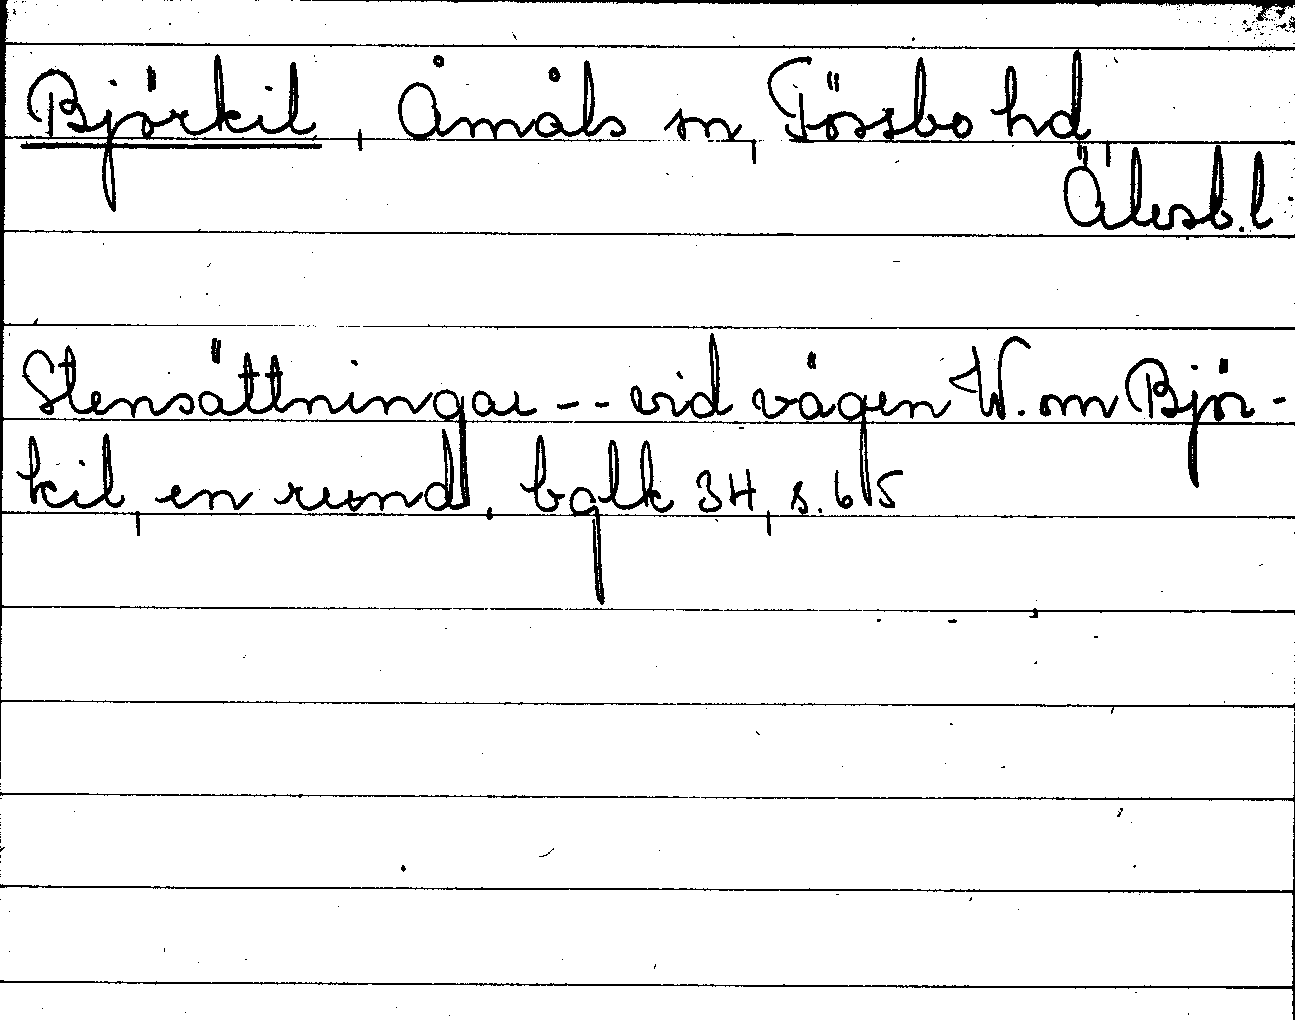 Björkil, Åmåls sn, Tössbo hd,
Älvsb.l
Stensättningar -- vid vägen W. om Björ-
kil, en rund. balk 34, s. 615